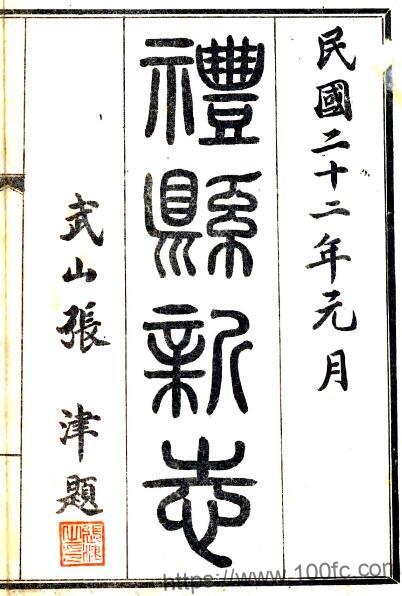 民國二十二年元月
禮縣新志
武山張 津題
張津之印
https://www.100fc.com